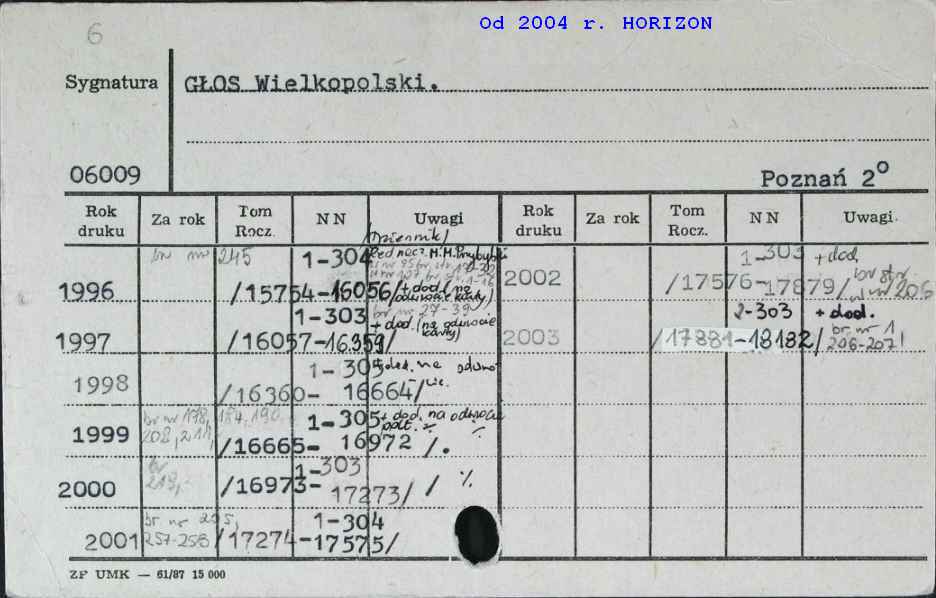 6
Od 2004 r. HORIZON
Sygnatura
GŁOS Wielkopolski.
06009
Poznań 2°
Rok druku Za rok Tom Rocz. NN Uwagi Rok druku Za rok Tom Rocz. NN Uwagi.
/Dziennik/
1996 br nr 245 1-304 Red nacz. M.M. Przybylski
/15754-16056/ + dod. (na odwrocie karty)
1997 1-303 br nr 27-39
/16057-16359/ + dod. (na odwrocie karty)
1998 1-305 + dod. na
/16360-16664/
1999 br nr 178, 184, 190, 208, 211, 1-305 + dod. na odwrocie
/16665-16972/.
2000 br 219, 1-303
/16973-17273/ / %
2001 br nr 205, 257-258 1-304
/17274-17575/
2002 1-303 + dod.
/17576-17879/ br str w nr 206
2003 2-303 + dod.
/17881-18182/ br nr 1 206-207!
ZF UMK — 61/87 15 000